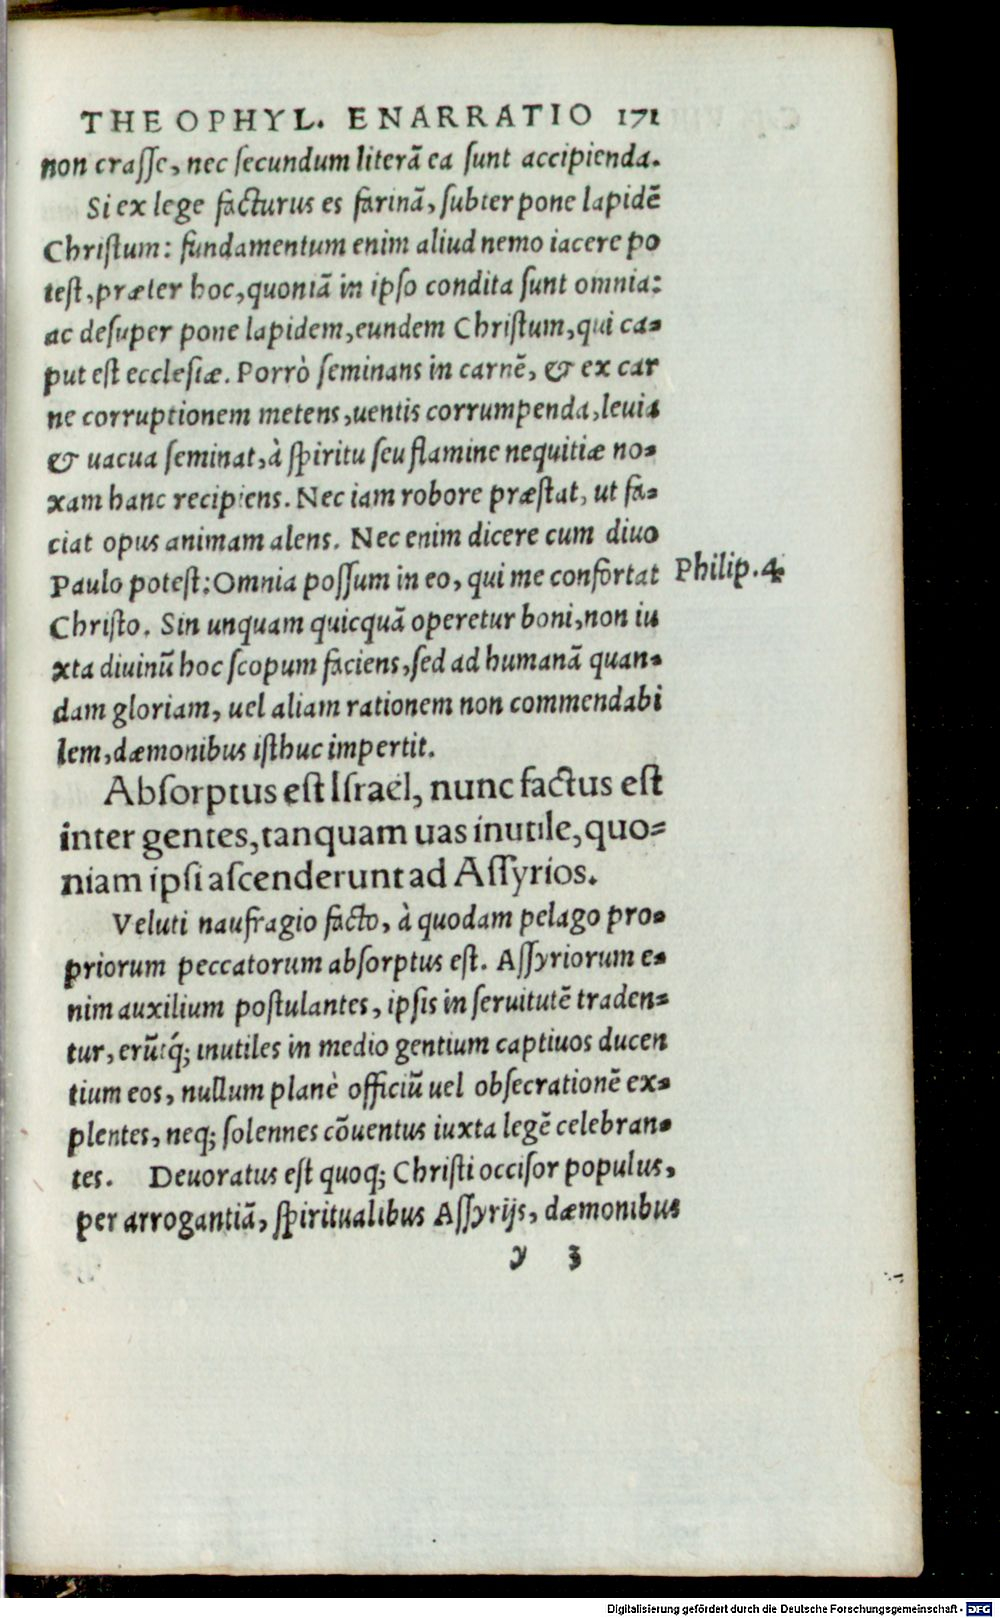 THEOPHYL. ENARRATIO 171
non crasse, nec secundum literā ea sunt accipienda.
Si ex lege facturus es farinā, subter pone lapidē
Christum: fundamentum enim aliud nemo iacere po
test, præter hoc, quoniā in ipso condita sunt omnia:
ac desuper pone lapidem, eundem Christum, qui ca-
put est ecclesiæ. Porrò seminans in carnē, & ex car
ne corruptionem metens, uentis corrumpenda, leuia
& uacua seminat, à spiritu seu flamine nequitiæ no-
xam hanc recipiens. Nec iam robore præstat, ut fa-
ciat opus animam alens. Nec enim dicere cum diuo
Paulo potest: Omnia possum in eo, qui me confortat
Philip. 4
Christo. Sin unquam quicquā operetur boni, non iu
xta diuinū hoc scopum faciens, sed ad humanā quan-
dam gloriam, uel aliam rationem non commendabi
lem, dæmonibus isthuc impertit.
Absorptus est Israël, nunc factus est
inter gentes, tanquam uas inutile, quo-
niam ipsi ascenderunt ad Assyrios.
Veluti naufragio facto, à quodam pelago pro-
priorum peccatorum absorptus est. Assyriorum e-
nim auxilium postulantes, ipsis in seruitutē traden-
tur, erūtq́; inutiles in medio gentium captiuos ducen
tium eos, nullum planè officiū uel obsecrationē ex-
plentes, neq; solennes cōuentus iuxta legē celebran-
tes. Deuoratus est quoq; Christi occisor populus,
per arrogantiā, spiritualibus Assyrijs, dæmonibus
y 3
Digitalisierung gefördert durch die Deutsche Forschungsgemeinschaft - DFG